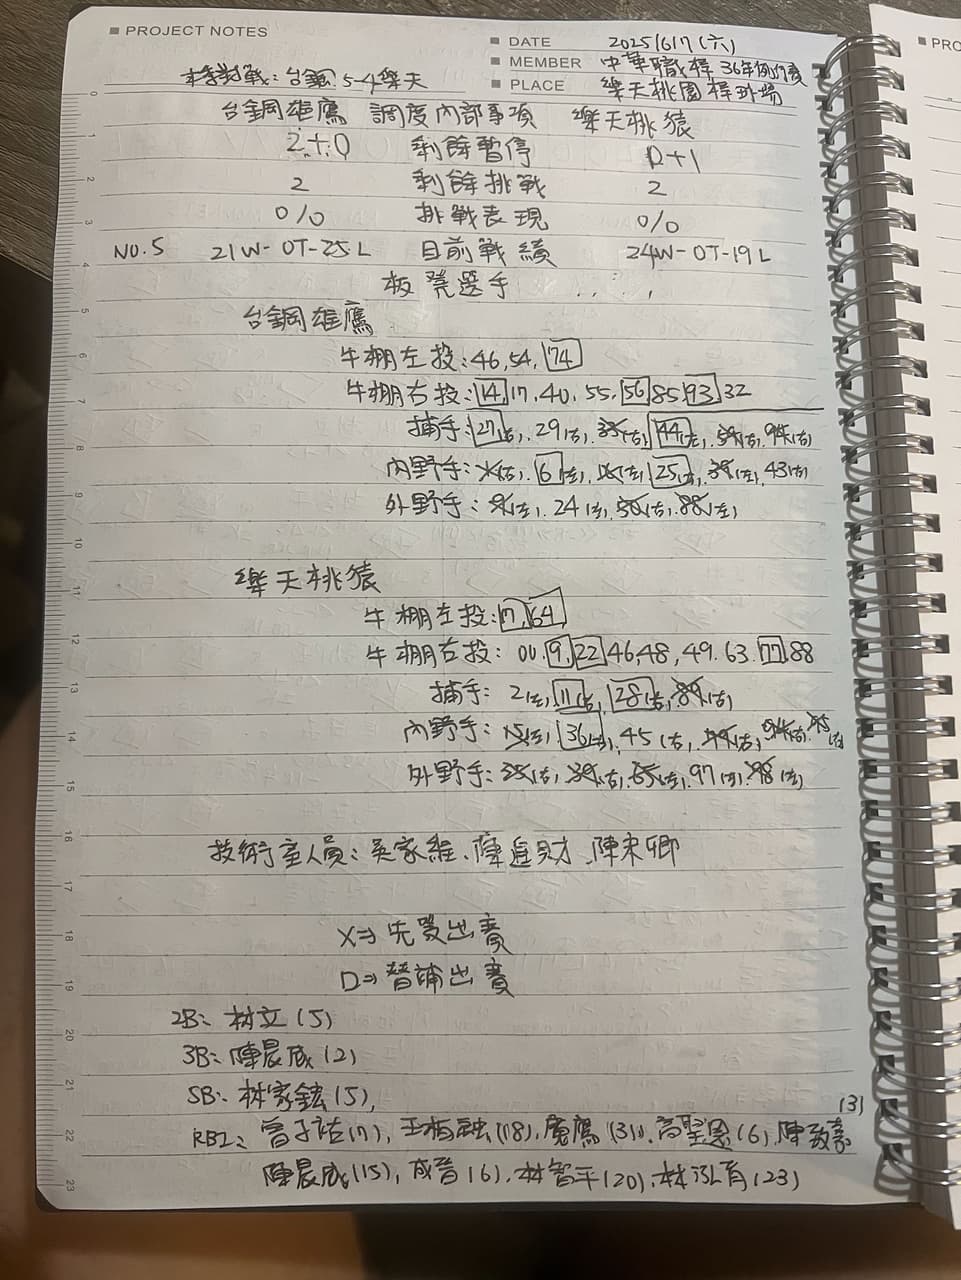 PROJECT NOTES
DATE 2025/6/7(六)
MEMBER 中華職棒36年例行賽
PLACE 樂天桃園棒球場
本季對戰：台鋼 5-4樂天
台鋼雄鷹 調度內部事項 樂天桃猿
2+0 剩餘暫停 0+1
2 剩餘挑戰 2
0/0 挑戰表現 0/0
NO.5 21W-0T-25L 目前戰績 24W-0T-19L
板凳選手
台鋼雄鷹
牛棚左投：46,54,74
牛棚右投：14,17,40,55,56,85,93,32
捕手：27(右),29(右),44(左),94(右)
內野手：6(左),25(右),39(左),43(右)
外野手：9(左),24(左),88(左)
樂天桃猿
牛棚左投：17,64
牛棚右投：00,19,22,46,48,49,63,77,88
捕手：2(左),11(右),28(右),89(右)
內野手：36(右),45(右)
外野手：97(右),98(左)
技術室人員：吳家維、陳進財、陳來卿
X⇒先發出賽
□⇒替補出賽
2B：林立(5)
3B：陳晨威(2)
SB：林家鋐(5),
RBI：曾子祐(17),王柏融(18),魔鷹(31),高聖恩(6),陳致嘉(3)
陳晨威(15),成晉(6),林智平(20),林泓育(23)
PRO